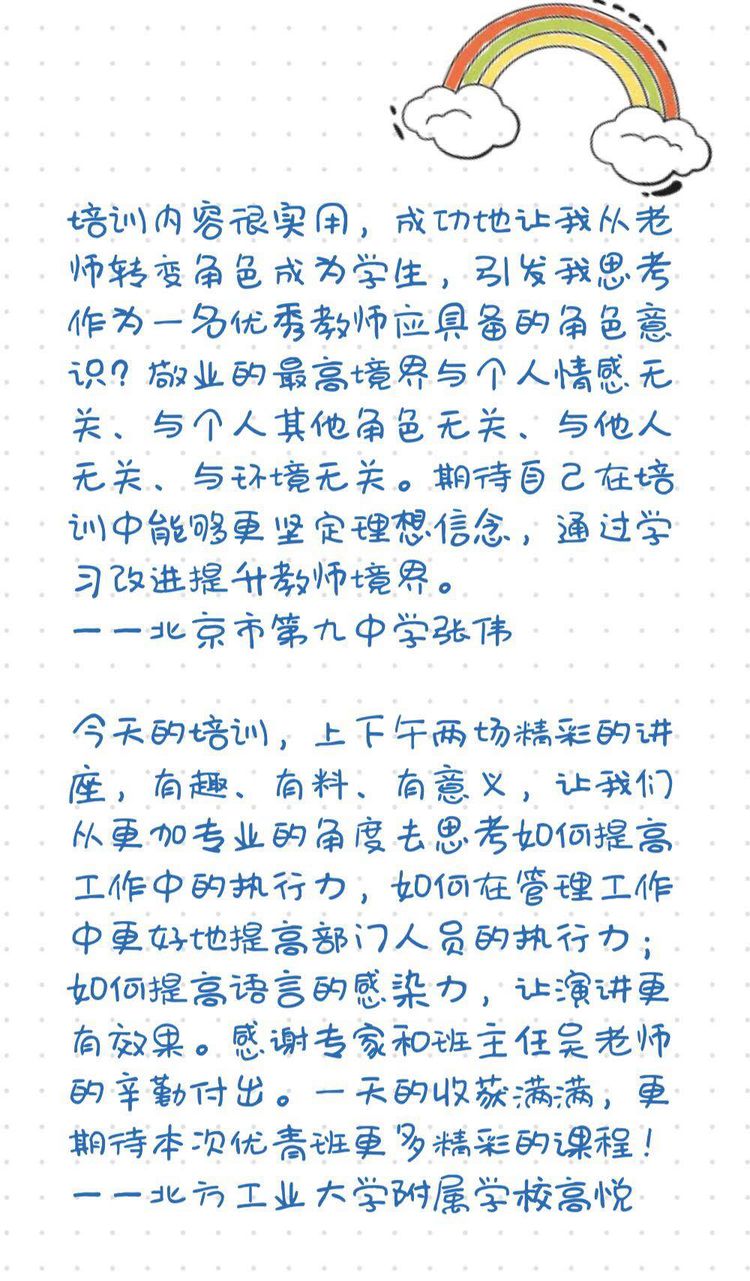 培训内容很实用，成功地让我从老
师转变角色成为学生，引发我思考
作为一名优秀教师应具备的角色意
识？敬业的最高境界与个人情感无
关、与个人其他角色无关、与他人
无关、与环境无关。期待自己在培
训中能够更坚定理想信念，通过学
习改进提升教师境界。
——北京市第九中学张伟
今天的培训，上下午两场精彩的讲
座，有趣、有料、有意义，让我们
从更加专业的角度去思考如何提高
工作中的执行力，如何在管理工作
中更好地提高部门人员的执行力；
如何提高语言的感染力，让演讲更
有效果。感谢专家和班主任吴老师
的辛勤付出。一天的收获满满，更
期待本次优青班更多精彩的课程！
——北方工业大学附属学校高悦